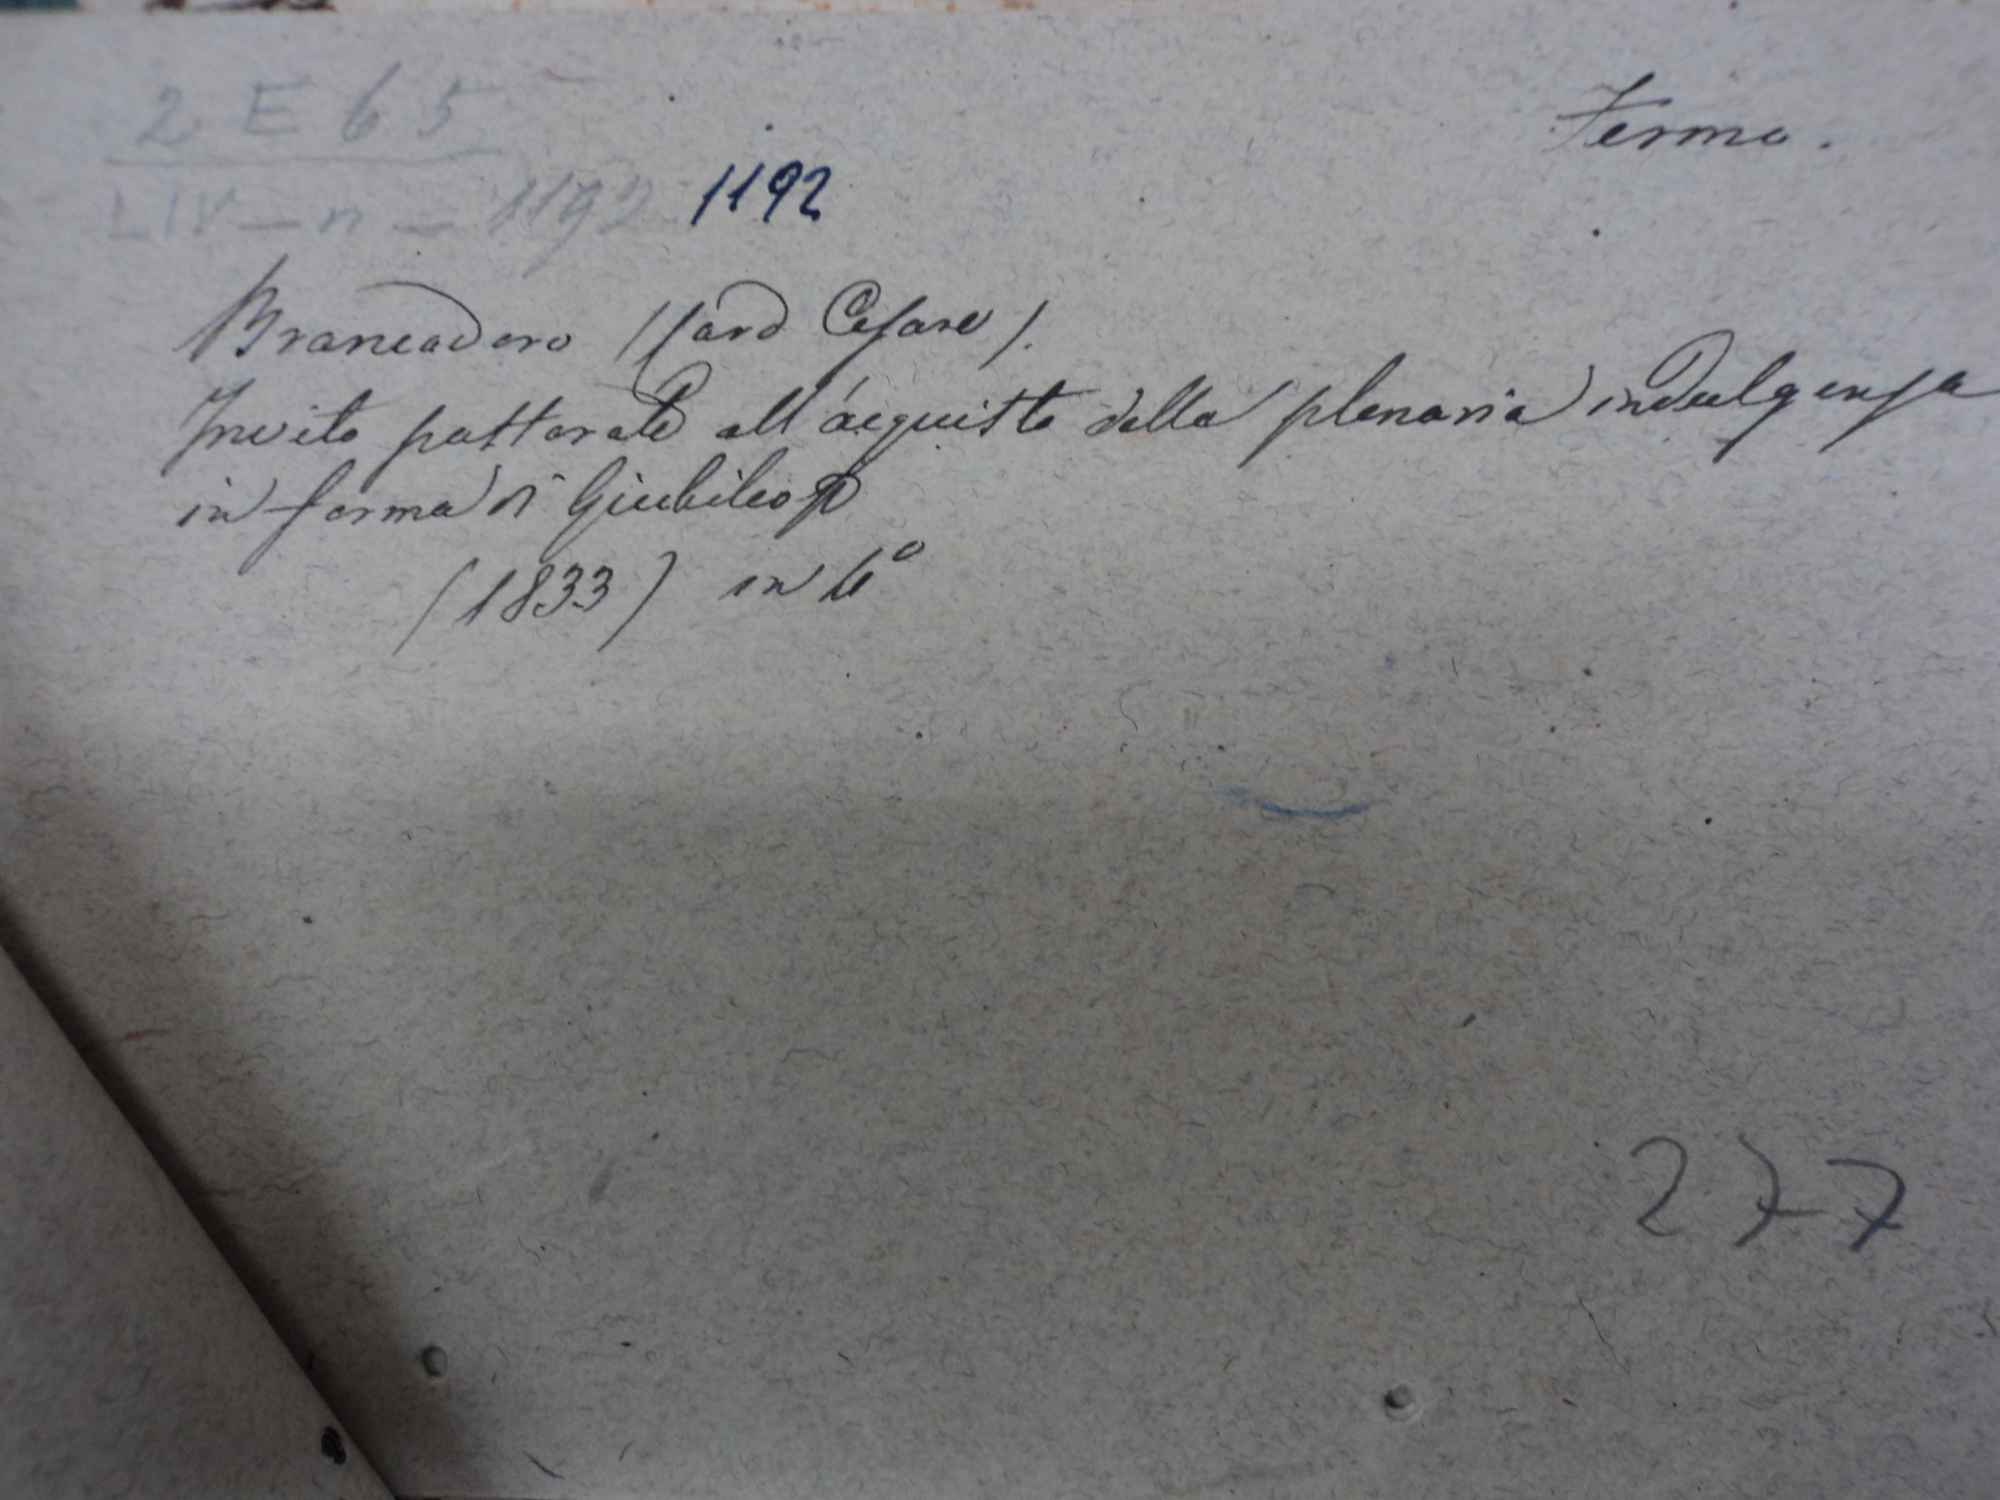 2 E 65
Fermo.
LIV - n - 1192 1192
Brancadoro (Card Cesare).
Invito pastorale all'acquisto della plenaria indulgenza
in forma di Giubileo
(1833) in 4°
277